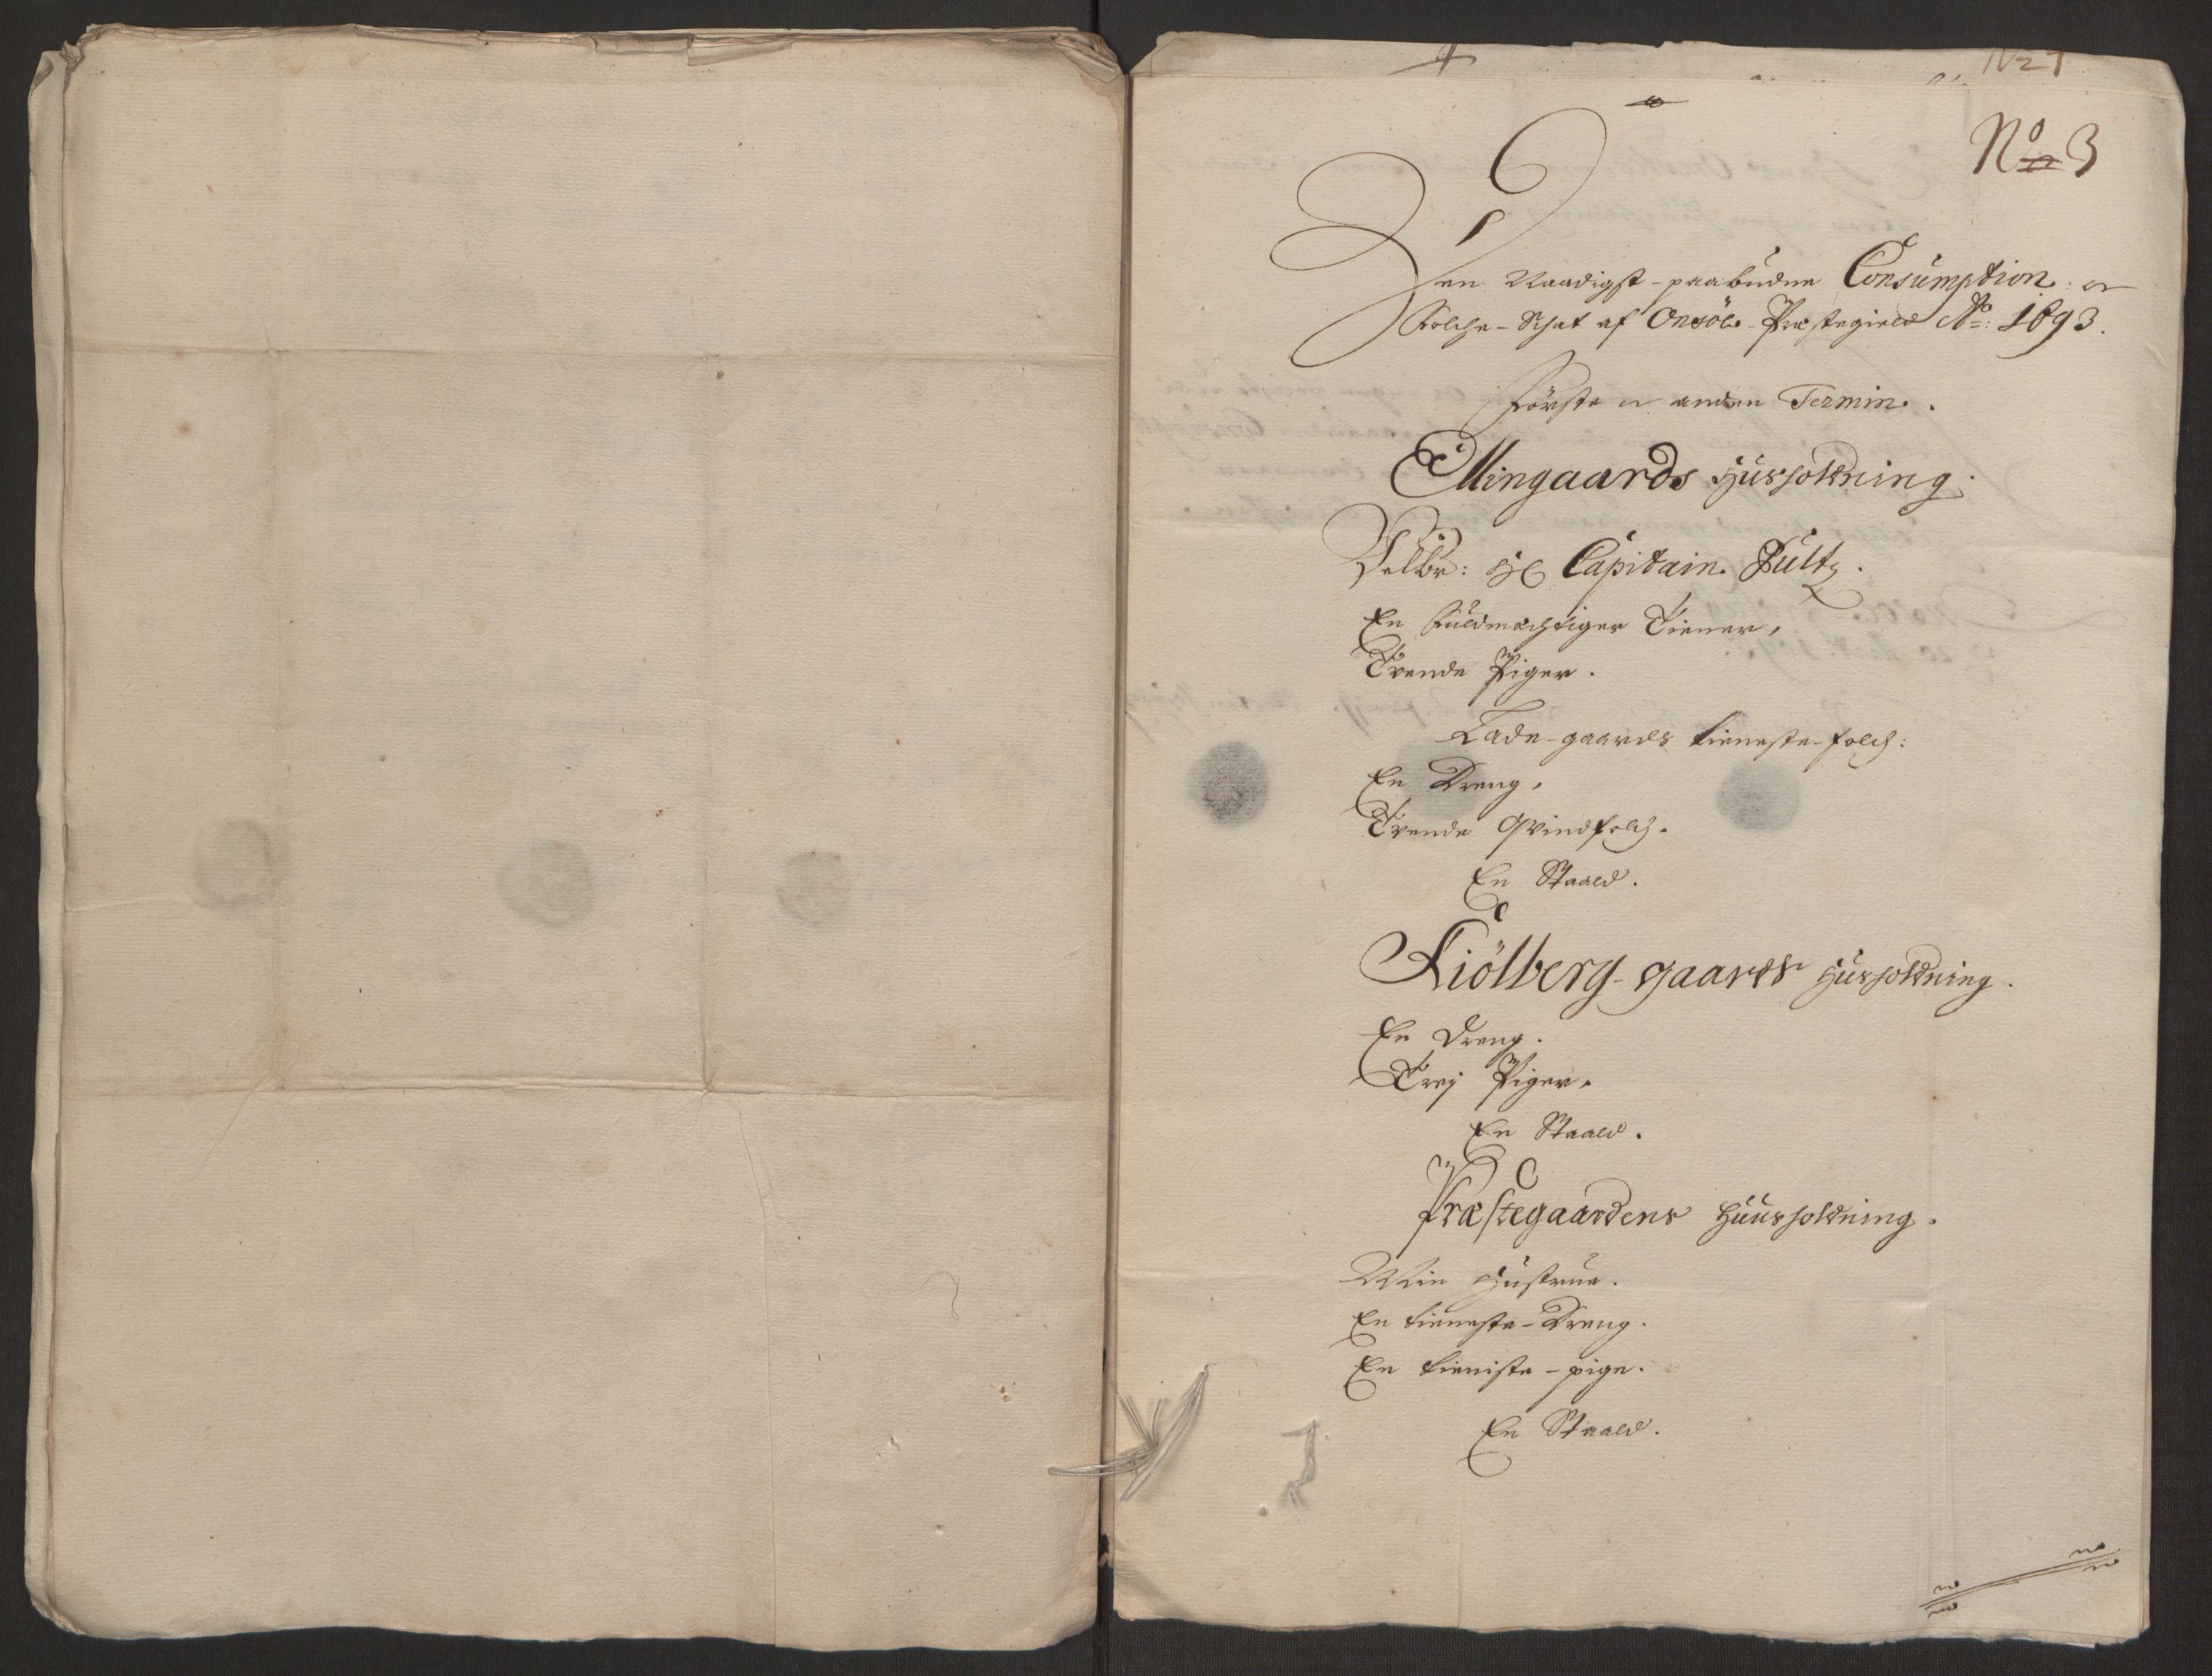 No 3
Den Naadigst-paabudne Consumption. oc
Folche-Schat af Onsöe-Præstegield Ao: 1693.
Förste oc anden Termin.
Ellingaards Huusholdning.
Velbr: Hr Capitain Sültz.
En Fuldmechtiger Tiener,
Trende Piger.
Lade-gaards tieneste-folch:
En Dreng,
Trende Qvindfolch.
En Staald.
Kiölberg-gaards Huusholdning.
En Dreng.
Trej Piger.
En Staald.
Præstegaardens Huusholdning.
Min Hustrue.
En tieneste-Dreng.
En tieniste-pige.
En Staald.